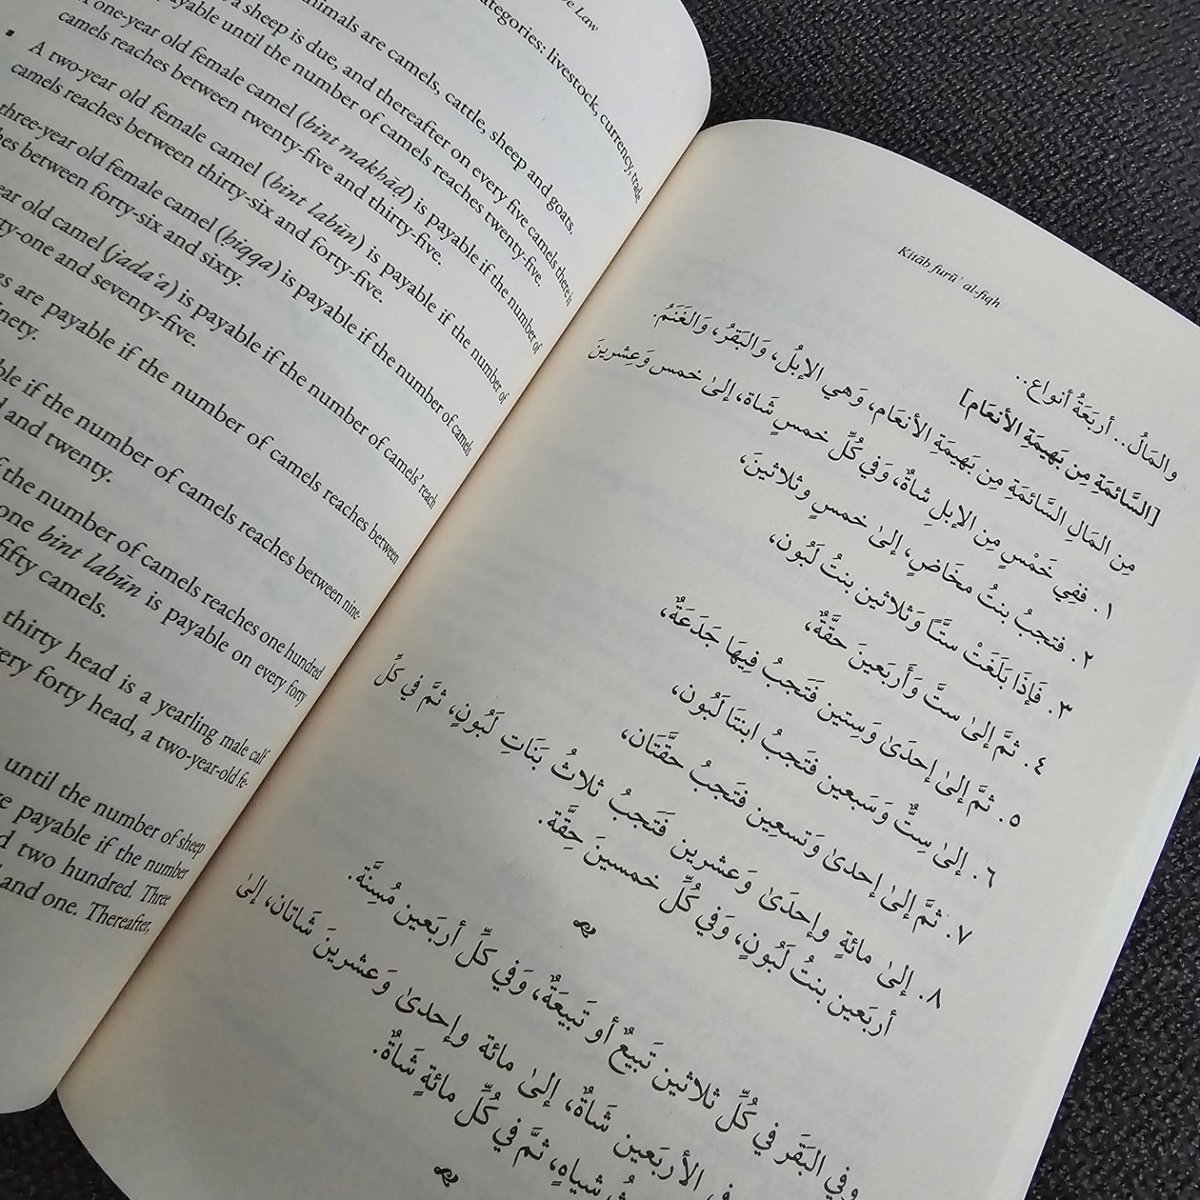 Law
categories: livestock, currency, trade,
animals are camels, cattle, sheep and goats.
a sheep is due, and thereafter on every five camels there is
payable until the number of camels reaches twenty-five.
one-year old female camel (bint makhāḍ) is payable if the number of
camels reaches between twenty-five and thirty-five.
▪ A two-year old female camel (bint labūn) is payable if the number of
camels reaches between thirty-six and forty-five.
three-year old female camel (ḥiqqa) is payable if the number of camels
between forty-six and sixty.
old camel (jadaʿa) is payable if the number of camels' reach
and seventy-five.
are payable if the number of camels reaches between
if the number of camels reaches between nine-
and twenty.
the number of camels reaches one hundred
one bint labūn is payable on every forty
fifty camels.
thirty head is a yearling male calf
forty head, a two-year-old fe-
until the number of sheep
payable if the number
two hundred. Three
and one. Thereafter,
Kitāb furūʿ al-fiqh
والمَالُ.. أربَعَةُ أنواع..
[السَّائمَةِ مِن بَهيمَةِ الأنعَام]
مِن المَالِ السَّائمَةِ مِن بَهيمَةِ الأنعَام، وَهي الإبُل، وَالبَقرُ، وَالغَنَمُ.
١. ففِي خَمْسٍ مِن الإبلِ شاةٌ، وَفي كُلِّ خمسٍ شَاة، إلىٰ خمس وَعِشرينَ
٢. فتجبُ بنتُ مخَاضٍ، إلىٰ خمسٍ وثلاثينَ،
٣. فَإذَا بَلَغَتْ ستًّا وَثَلاثين بنتُ لَبُون،
٤. ثمَّ إلىٰ ستَّ وَأَربَعينَ حقَّةٌ،
٥. ثمَّ إلىٰ إحدَىٰ وَسِتين فَتَجبُ فِيهَا جَدَعَةٌ،
٦. إلىٰ ستٌّ وَسَبعين فتَجبُ ابنتَا لَبُون،
٧. ثمَّ إلىٰ إحدىٰ وَتسعين فتجبُ حقَّتَان،
٨. إلىٰ مائةٍ وإحدَىٰ وَعشرين فَتَجبُ ثلاثُ بنَاتِ لَبُونٍ، ثمَّ في كُلِّ
أربَعين بنتُ لَبُونٍ، وَفي كُلِّ خمسينَ حِقَّة.
وَفي البَقَر في كُلِّ ثلاثين تَبيعٌ أو تَبيعَةٌ، وَفي كلِّ أربَعين مُسِنَّة.
في الأربَعين شَاةٌ، إلىٰ مائة وإحدىٰ وَعشرينَ شَاتان، إلىٰ
شياهٍ، ثمَّ في كُلِّ مائةٍ شَاةٌ.